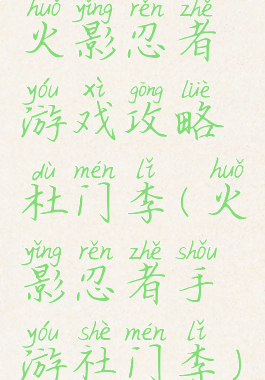 huǒ yǐng rěn zhě
火影忍者
yóu xì gōng lüè
游戏攻略
dù mén lǐ huǒ
杜门李(火
yǐng rěn zhě shǒu
影忍者手
yóu shè mén lǐ
游社门李)